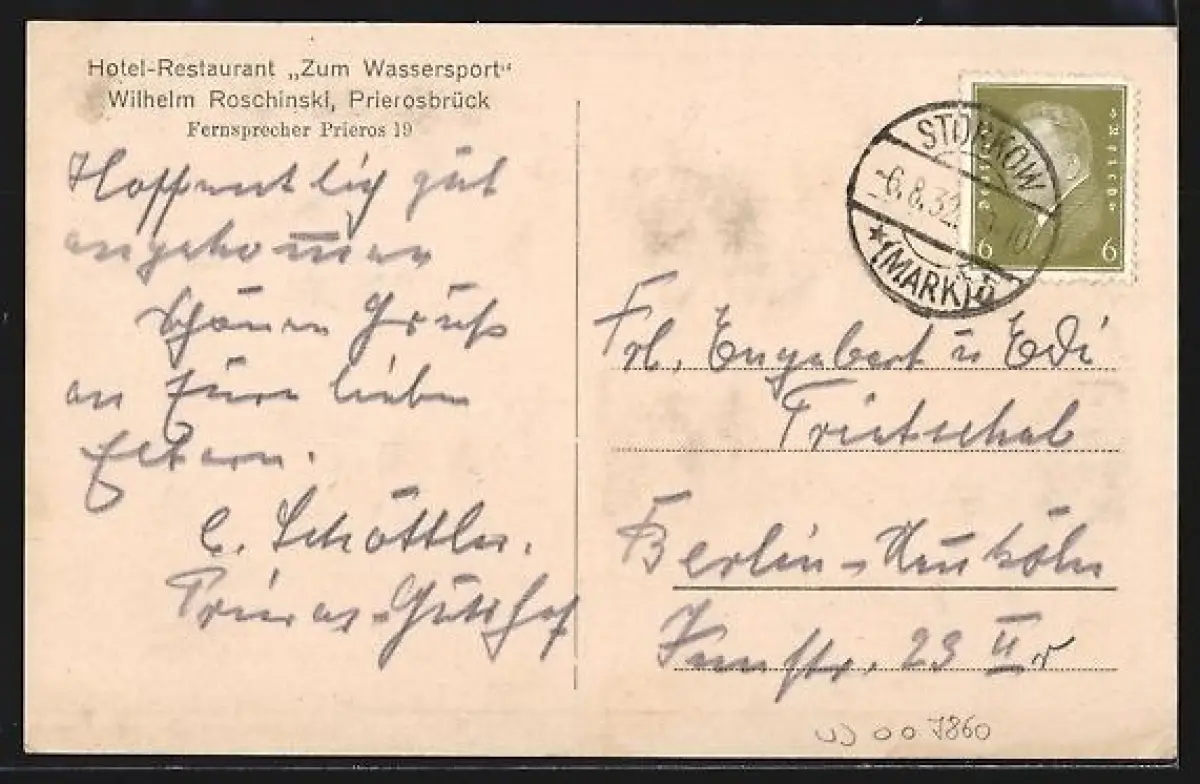 Hotel-Restaurant „Zum Wassersport“
Wilhelm Roschinski, Prierosbrück
Fernsprecher Prieros 19
Hoffentlich gut
angekommen
Schönen Gruß
an Eure lieben
Eltern.
C. Schöttler.
Prieros-Gutshof
STORKOW
-6.8.32
(MARK)
6 6
Frl. Engebert u Edi
Berlin-Neukölln
23 II r
7860